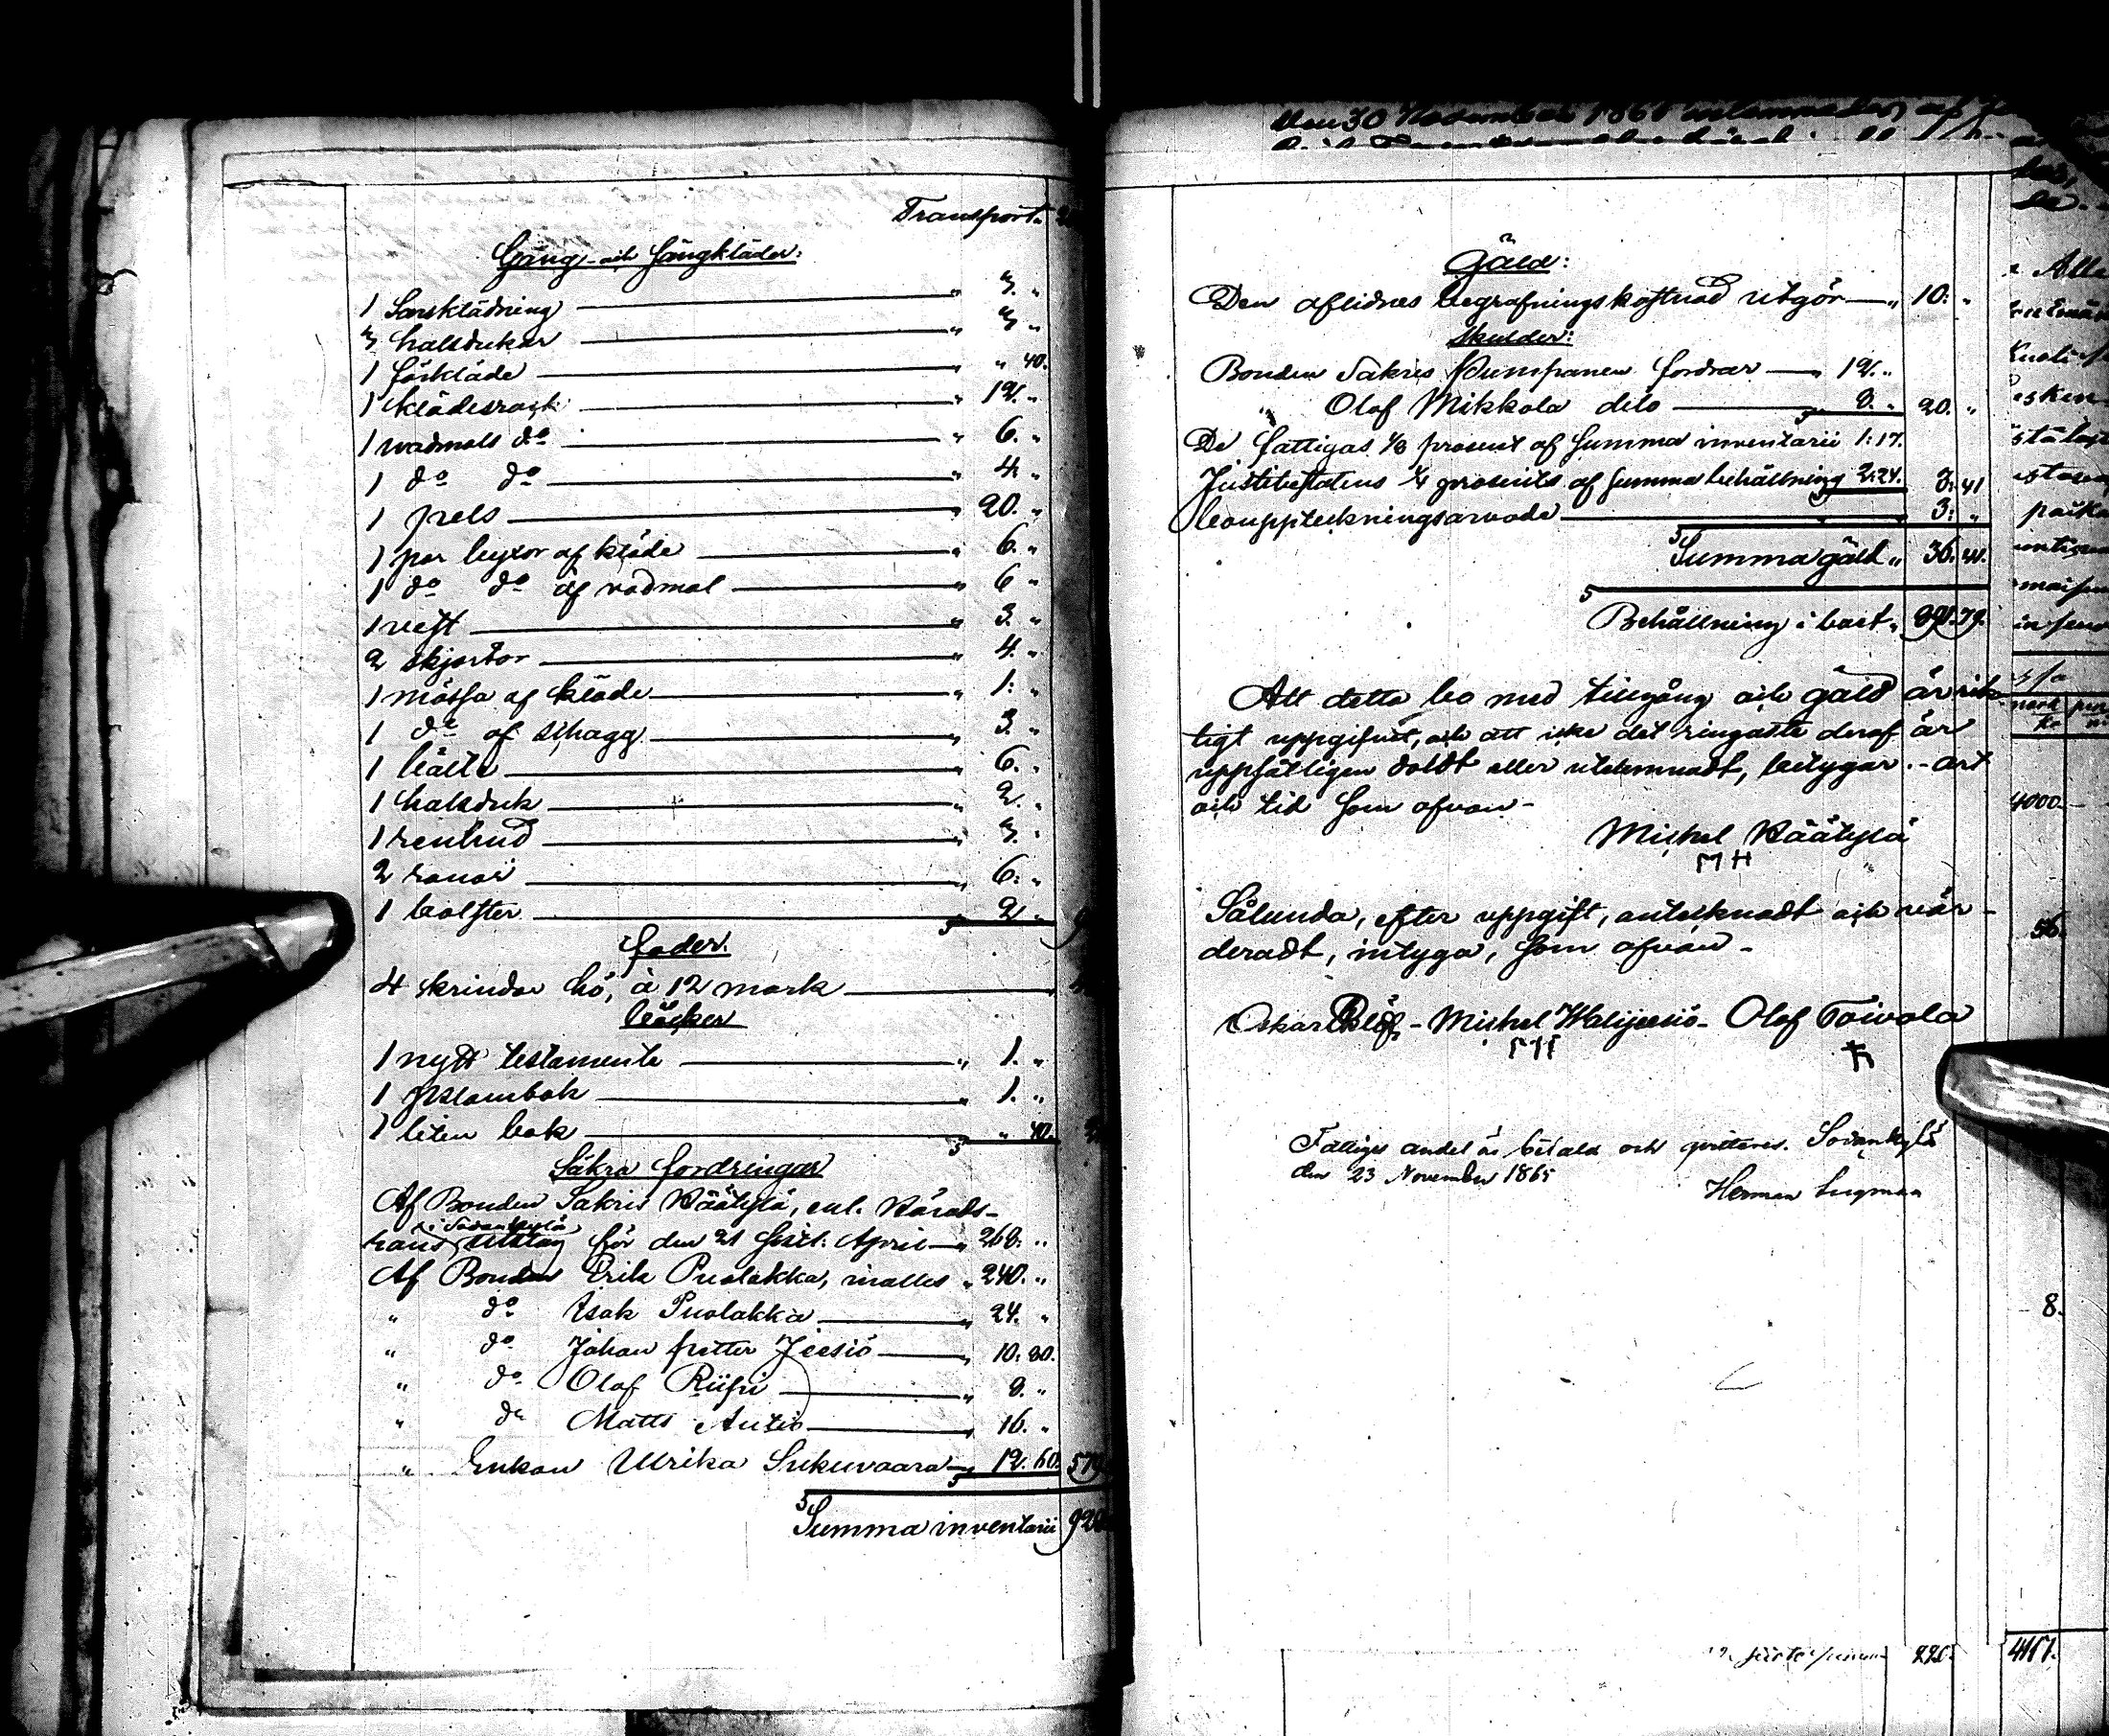 Transport.
Gång- och Sängkläder:
1 Sarsklädning " 3. "
3 halsdukar " 3 "
1 förkläde " " 40.
1 klädesrock " 12. "
1 vadmals do " 6. "
1 do do " 4. "
1 pels " 20. "
1 par byxor af kläde " 6. "
1 do do af vadmal " 6 "
1 vest " 3. "
2 skjortor " 4. "
1 mössa af kläde " 1: "
1 do af schagg " 3. "
1 bälte " 6. "
1 halsduk " 2. "
1 renhud " 3. "
2 ranor " 6: "
1 bolster " 2. "
foder.
4 skrindor hö, à 12 mark
böcker
1 nytt testamente " 1. "
1 psalmbok " 1. "
1 liten bok " 40.
Säkra fordringar
Af Bonden Sakris Käätylä, enl. Härads-
i Sodankylä
häns Utslag för den 21 sistl. April " 268: "
Af Bonden Erik Puolakka, inalles " 240. "
" do Isak Puolakka " 24. "
" do Johan petter Jeesiö " 10: 80.
" do Olof Riipi " 8. "
" do Matts Autio " 16. "
" Enkan Ulrika Sukuvaara " 12. 60. 579
Summa inventarii 928
den 30 November 1861
Gäld:
Den aflidnes begrafningskostnad utgör " 10: "
Skulder:
Bonden Sakris Kumpanen fordrar " 12. "
" Olof Mikkola dito 8. " 20. "
De fattigas 1/8 procent af Summa inventarii 1:17.
Justitiestatens 1/4 procents af Summa behållning 2:24. 3: 41
bouppteckningsarvode 3: "
Summa gäld " 36. 41.
Behållning i boet " 891. 79.
Att detta bo med tillgång och gäld är rik-
tigt uppgifvet, och att icke det ringaste deraf är
uppsåtligen doldt eller utelemnadt, betygar - ort
och tid som ofvan -
Michel Käätylä
MH
Sålunda, efter uppgift, antecknadt och vär-
deradt, intyga, som ofvan -
Oskar - Michel Walijeesiö - Olof Toivola
Fattiges andel är betald och qvitteras. Sodankylä
den 23 November 1865
Herman
4000.
56.
8.
220.
4157.